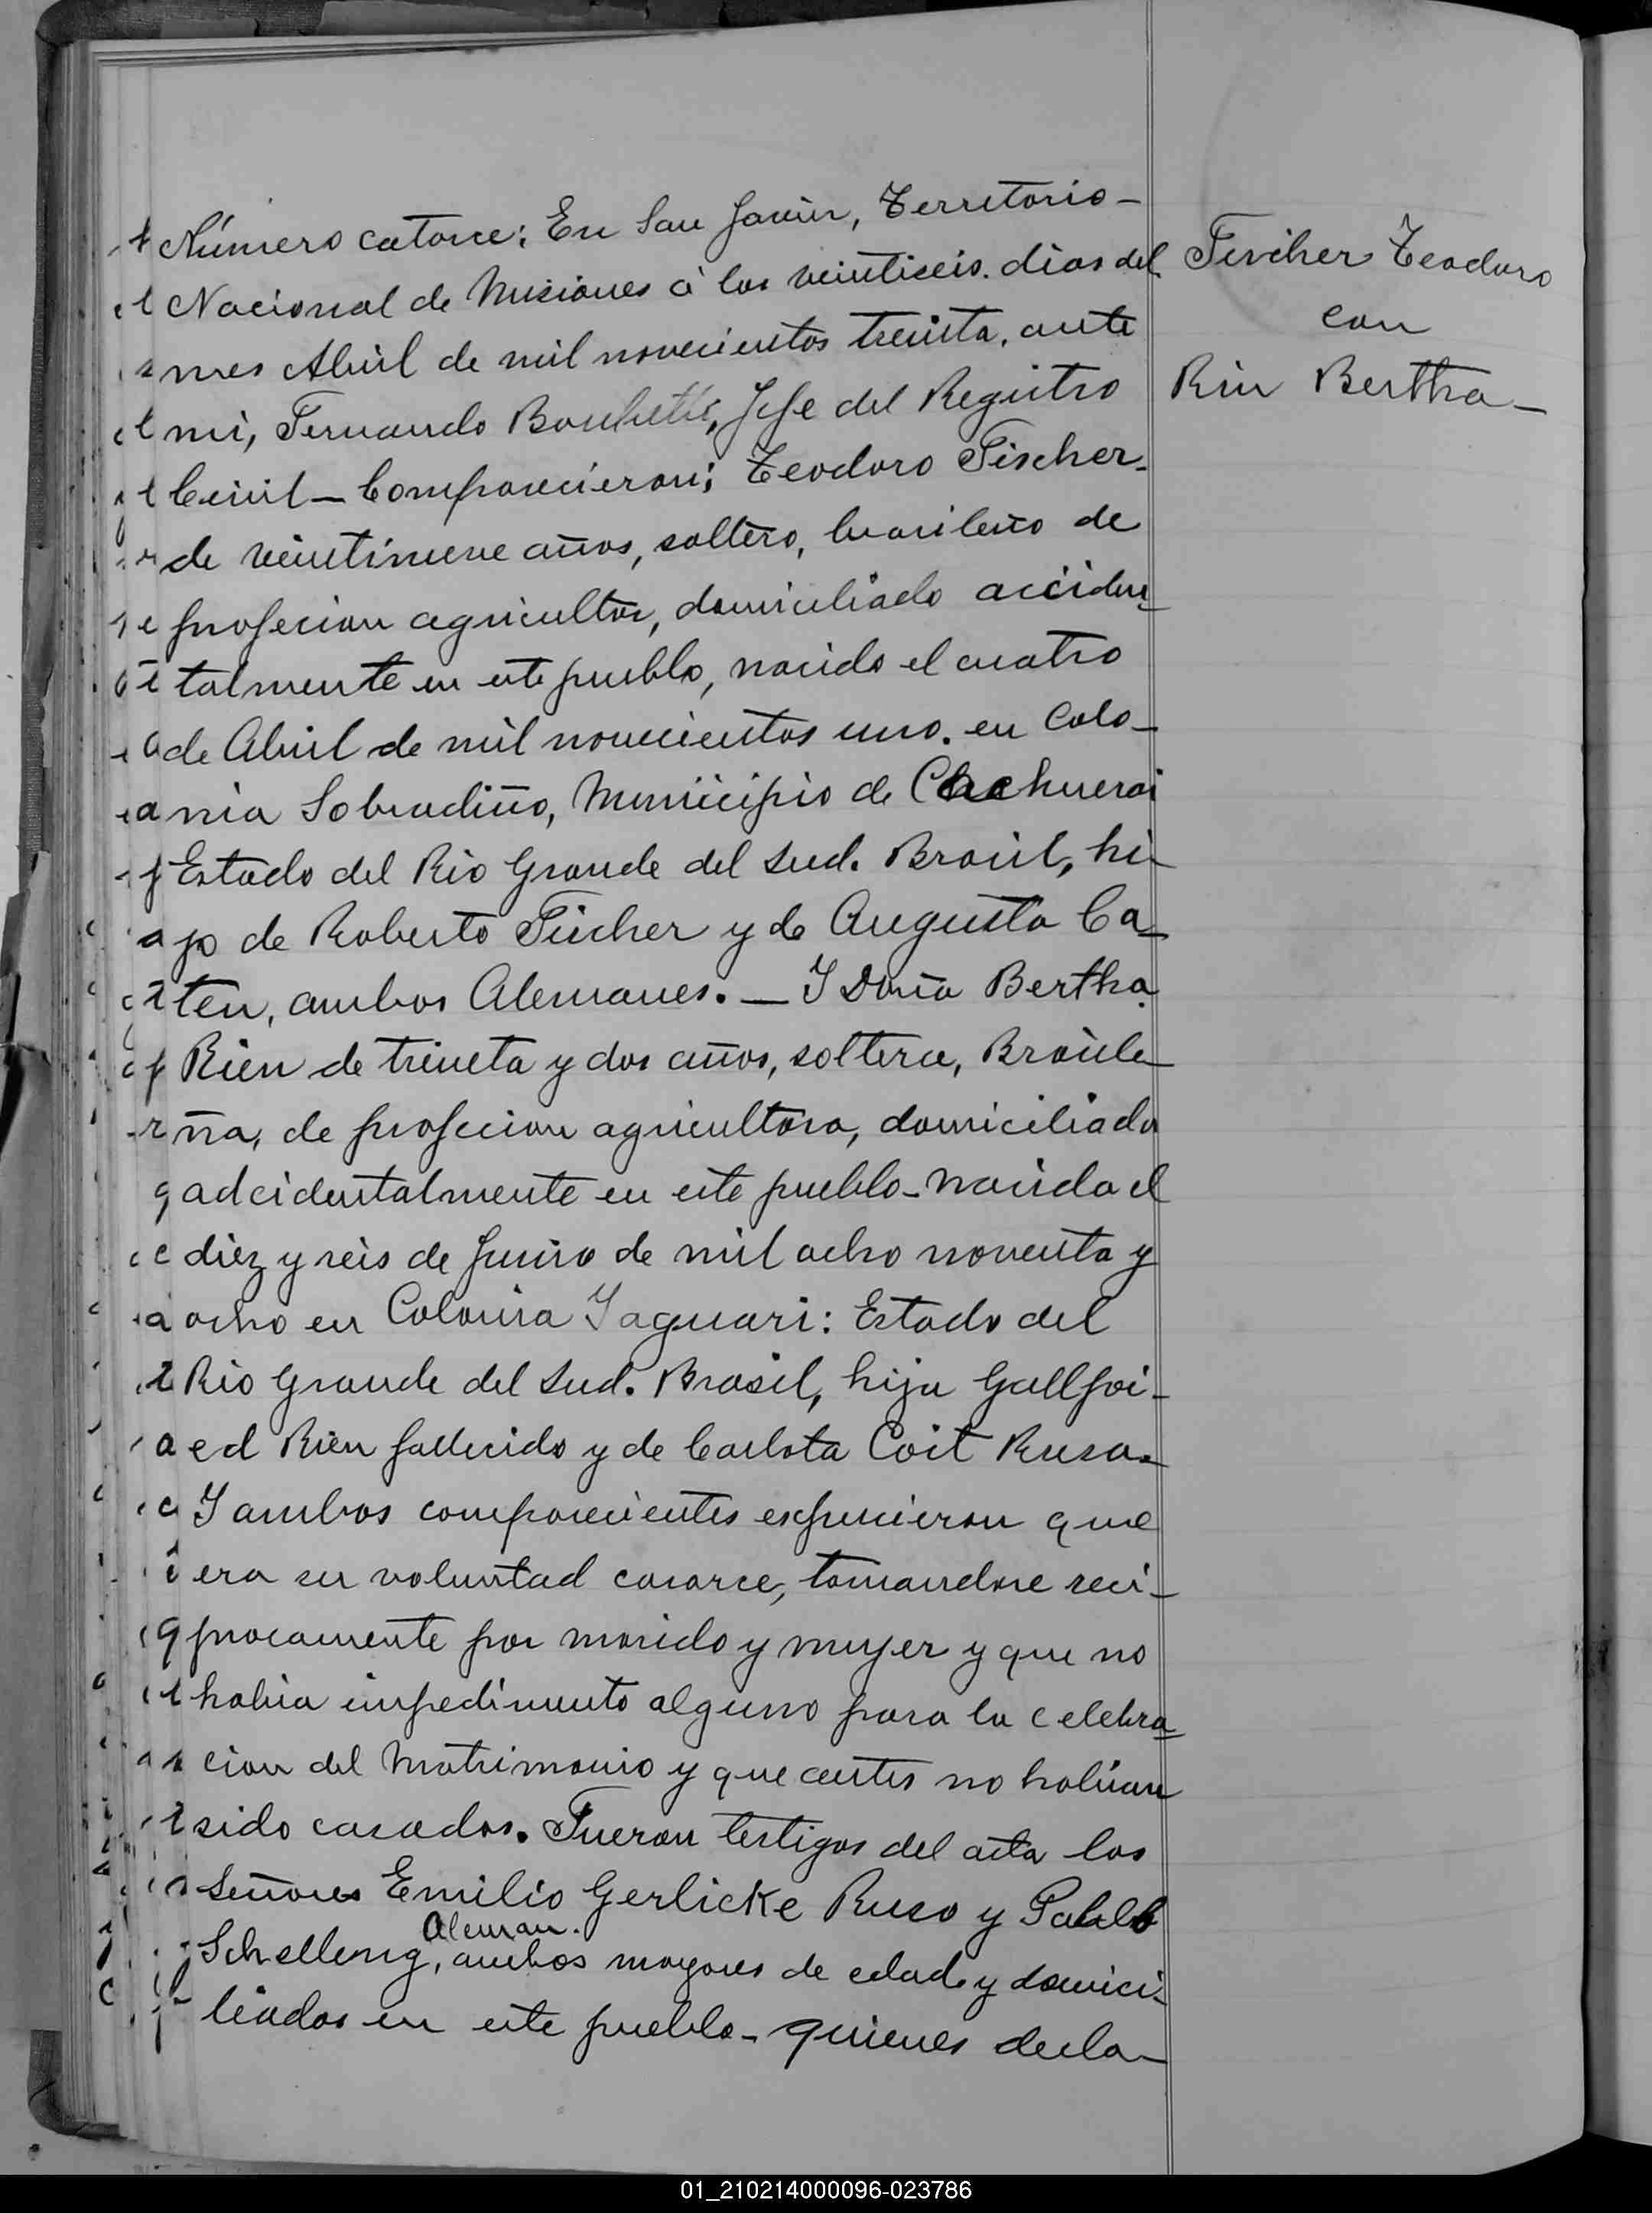 Número catorce: En San Javier, Territorio-
Nacional de Misiones á los veintiseis. dias del
mes Abril de mil novecientos treinta, ante
mi, Fernando Jefe del Registro
Civil - Comparecieron; Teodoro Fischer-
de veintinueve años, soltero, brasileño de
profecion agricultor, domiciliado acciden-
talmente en este pueblo, nacido el cuatro
de Abril de mil novecientos uno. en Colo-
nia Sobradiño, Municipio de Cachuerai
Estado del Rio Grande del Sud. Brasil, hi-
jo de Roberto Fischer y de Augusta Ca-
ten, ambos Alemanes. - I Doña Bertha
Rien de treinta y dos años, soltera, Brasile-
ña, de profecion agricultora, domiciliada
adcidentalmente en este pueblo - nacida el
diez y seis de Junio de mil ocho noventa y
ocho en Colonia Jaguari: Estado del
Rio Grande del Sud. Brasil, hija Gallfoi-
ed Rien fallecido y de Carlota Coit Rusa.
I ambos comparecientes expucieron que
era su voluntad casarce, tomandose reci-
procamente por marido y mujer y que no
habia impedimento alguno para la celebra-
cion del Matrimonio y que antes no habian
sido casados. Fueron testigos del acta los
Señores Emilio Gerlicke Ruso y Pablo
Aleman.
Schelleng, ambos mayores de edad y domici-
liados en este pueblo - quienes decla-
Fischer Teodoro
con
Rin Bertha-
01_210214000096-023786